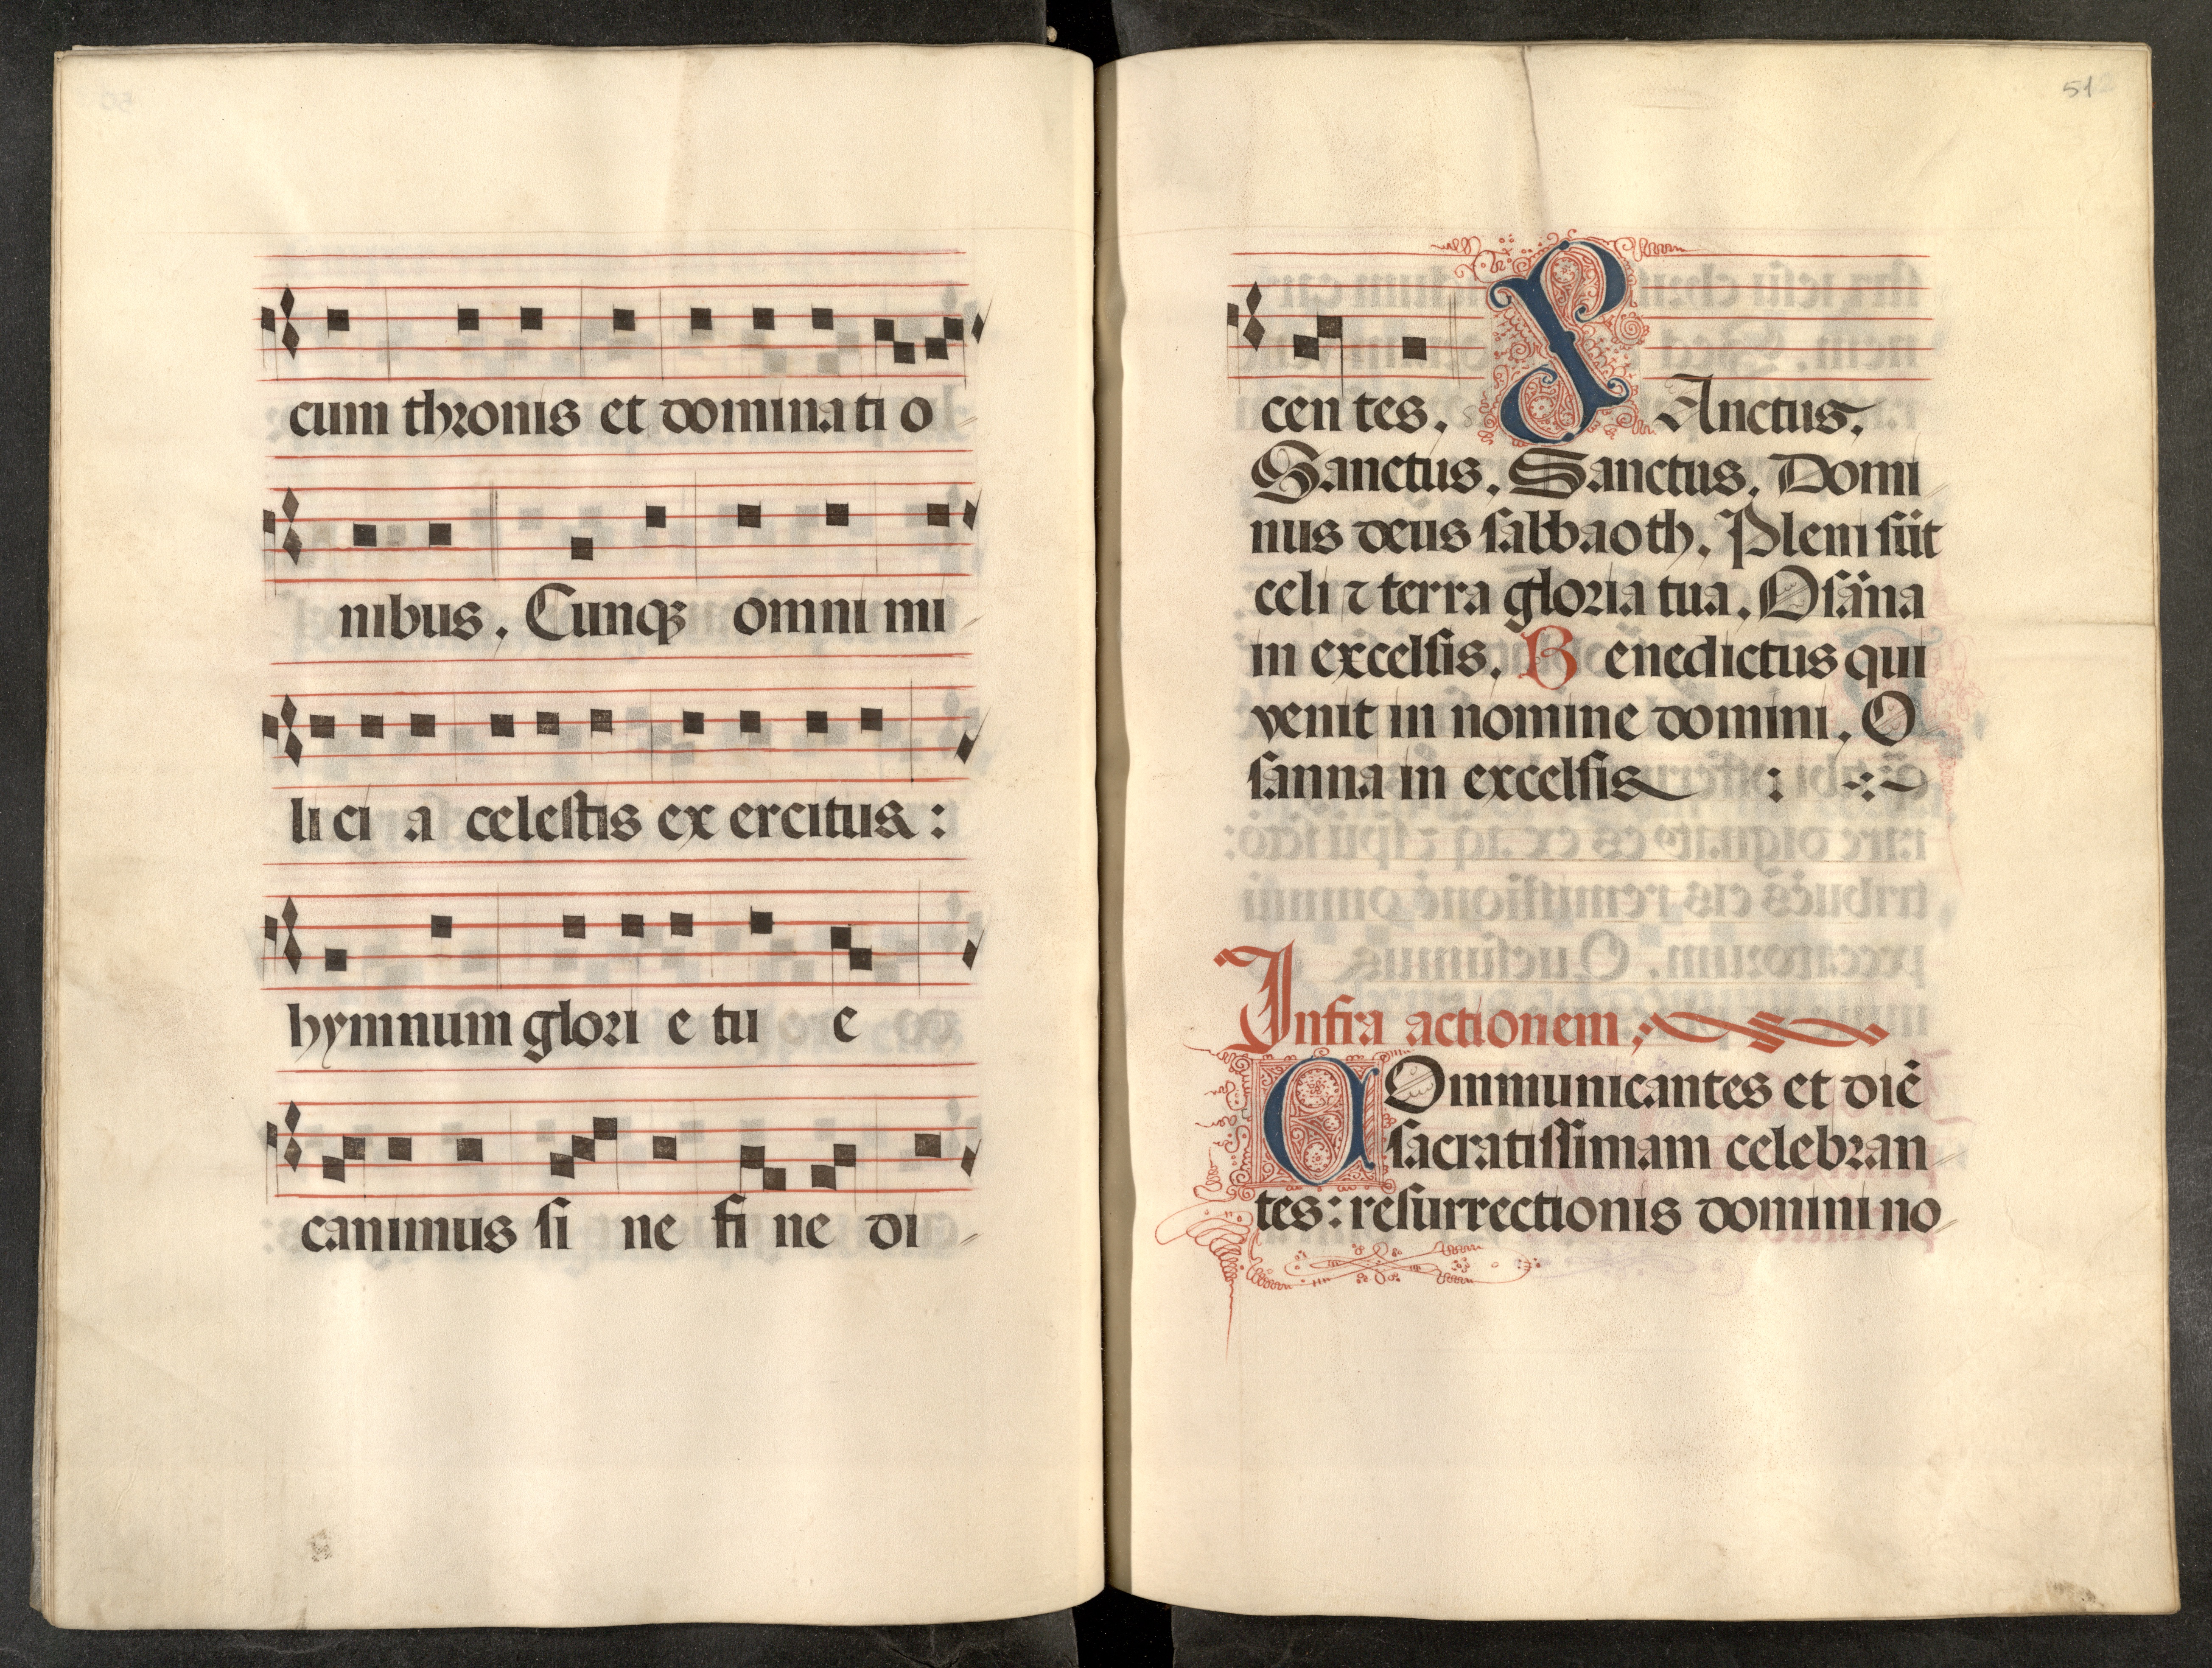 cum thronis et dominati o
nibus. Cunqꝫ omni mi
li ci a celestis ex ercitus:
hymnum glori e tu e
canimus si ne fi ne di
51
cen tes. SAnctus.
Sanctus. Sanctus. Domi
nus deus sabbaoth. Pleni sūt
celi ⁊ terra gloria tua. Osāna
in excelsis. Benedictus qui
venit in nomine domini. O
sanna in excelsis :
Infra actionem:
COmmunicantes et diē
sacratissimam celebran
tes: resurrectionis domini no